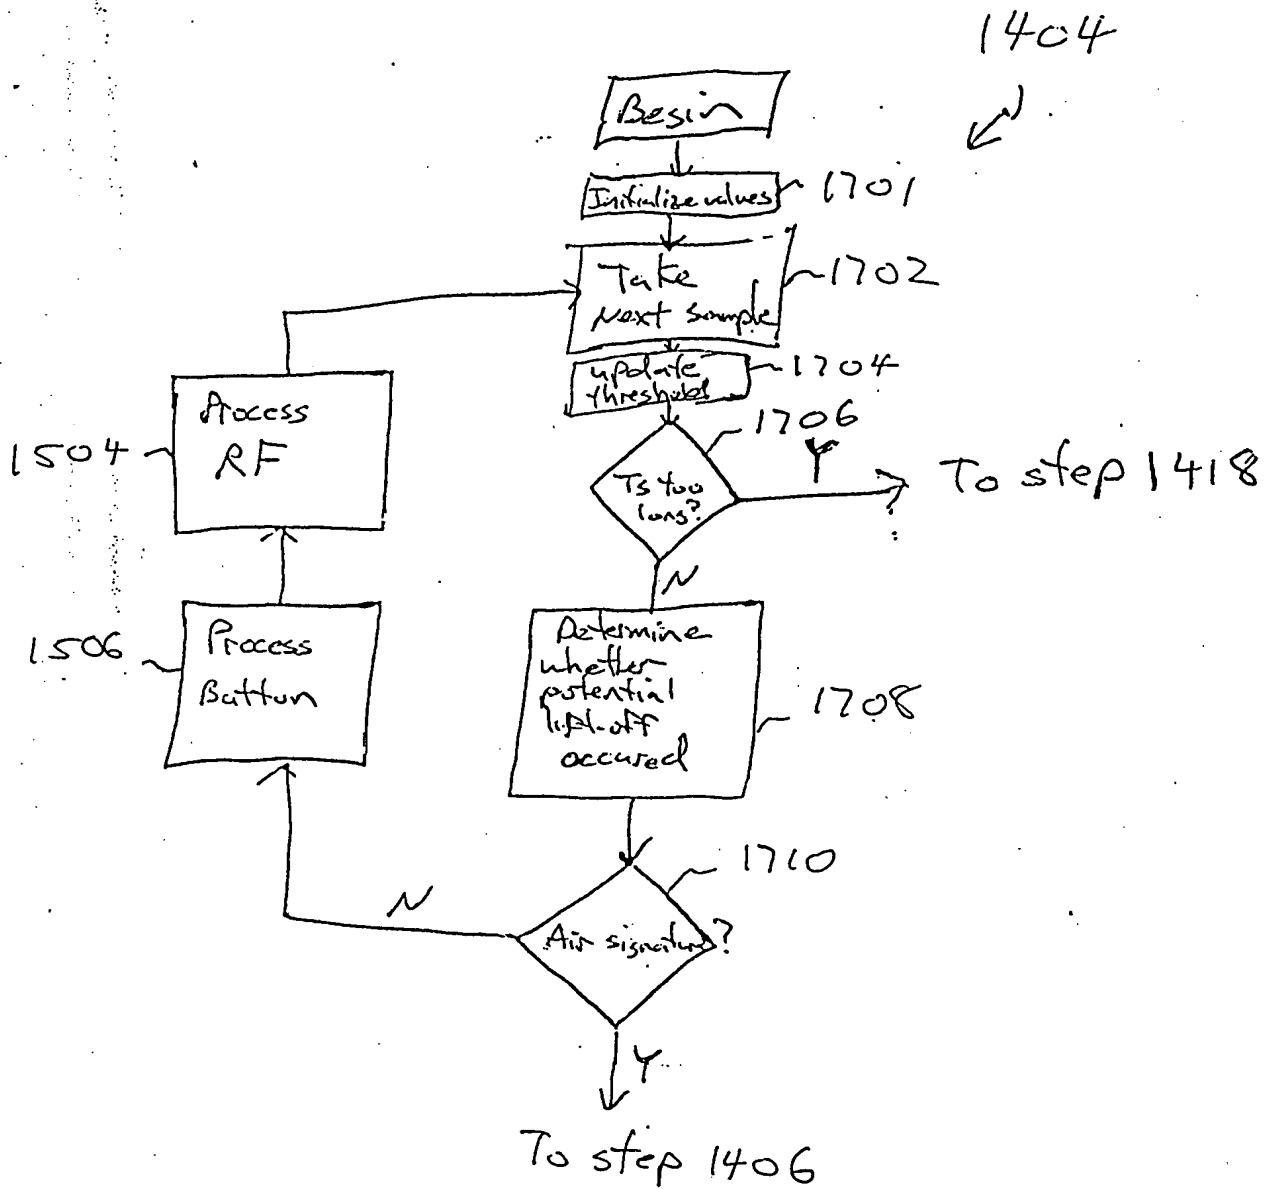 1404
Begin
Initialize values
1701
Take
Next Sample
1702
update
thresholds
1704
1706
Ts too
long?
Y
To step 1418
N
Determine
whether
potential
lift-off
occured
1708
1710
Air signature?
N
Y
To step 1406
Process
Button
1506
Process
RF
1504